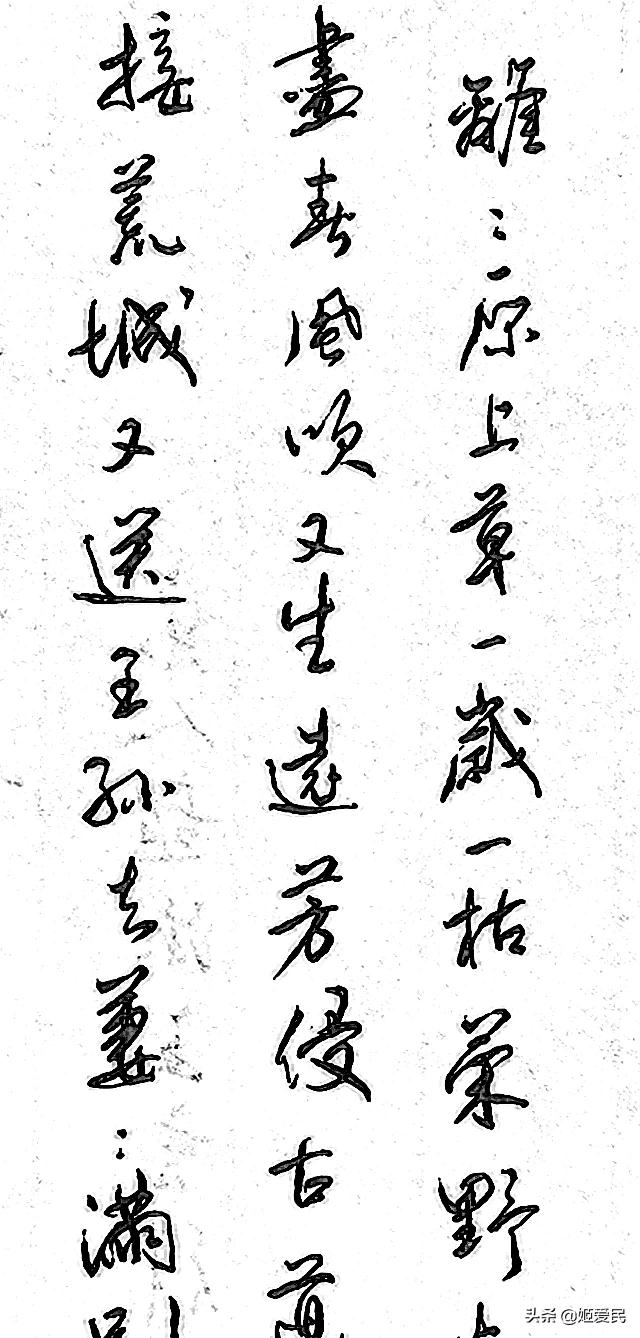 離〻原上草一歲一枯榮野
盡春風吹又生遠芳侵古
接荒城又送王孫去萋〻滿
头条 @姬爱民